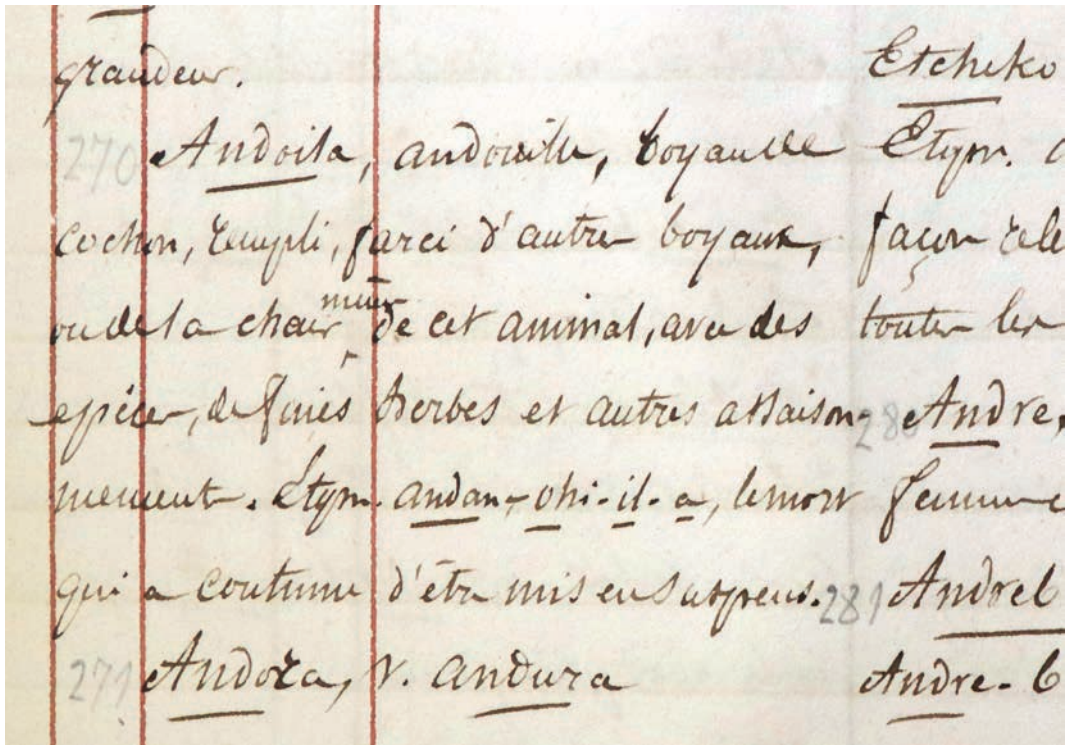 grandeur.
270 Andoila, andouille, boyau de
cochon, rempli, farci d'autres boyaux,
ou de la chair même de cet animal, avec des
epices, de fines herbes et autres assaison-
nement. Etym. andan-ohi-il-a, le mort
qui a coutume d'être mis en suspens.
271 Andora, V. andura
Etcheko
Etym.
façon
toutes les
280 Andre,
femme
281 Andreb
Andre-b